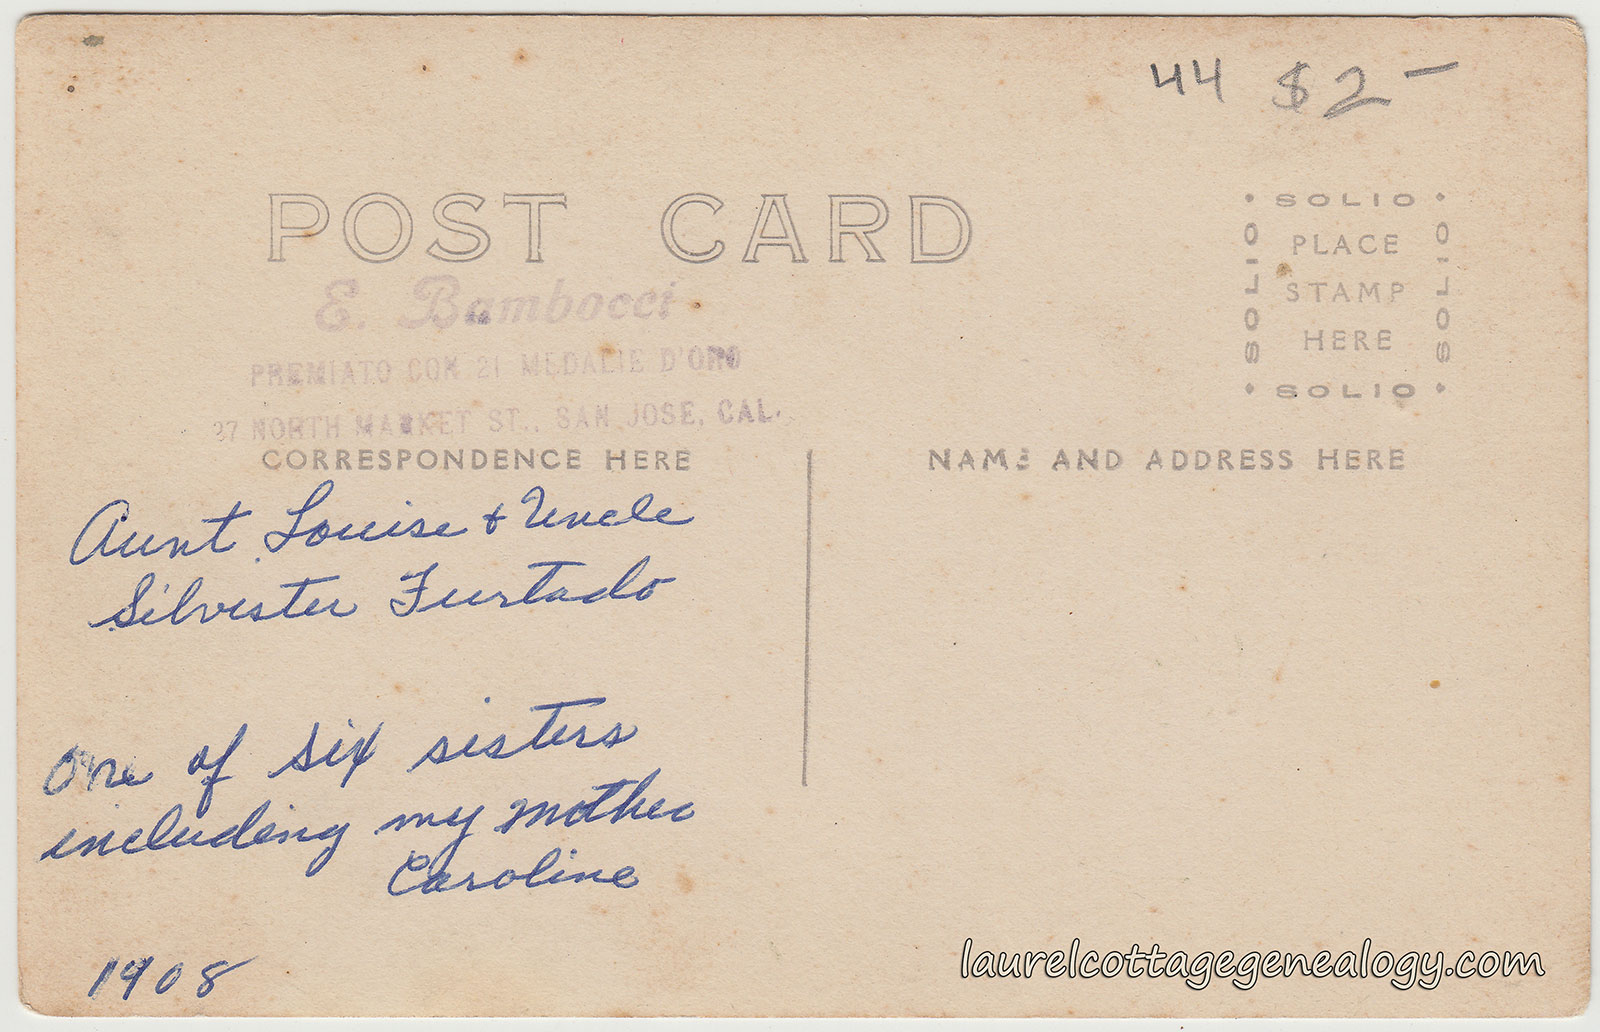 44 $2-
POST CARD
E. Bambocci
PREMIATO CON 21 MEDALIE D'ORO
37 NORTH MARKET ST., SAN JOSE, CAL.
SOLIO
SOLIO
PLACE
STAMP
HERE
SOLIO
SOLIO
CORRESPONDENCE HERE
NAME AND ADDRESS HERE
Aunt Louise & Uncle
Silvister Furtado
One of six sisters
including my mother
Caroline
1908
laurelcottagegenealogy.com